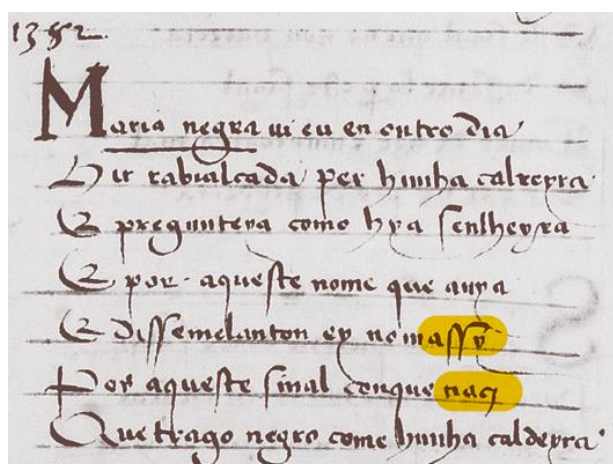 1382
Maria negra ui eu en outro dia
Hir rabialcada per hunha calreyra
E pregunteya como hya senlheyra
E por aqueste nome que auya
E dissemelanton ey nomassy
Por aqueste sinal conque naci
Que trago negro come hunha caldeyra